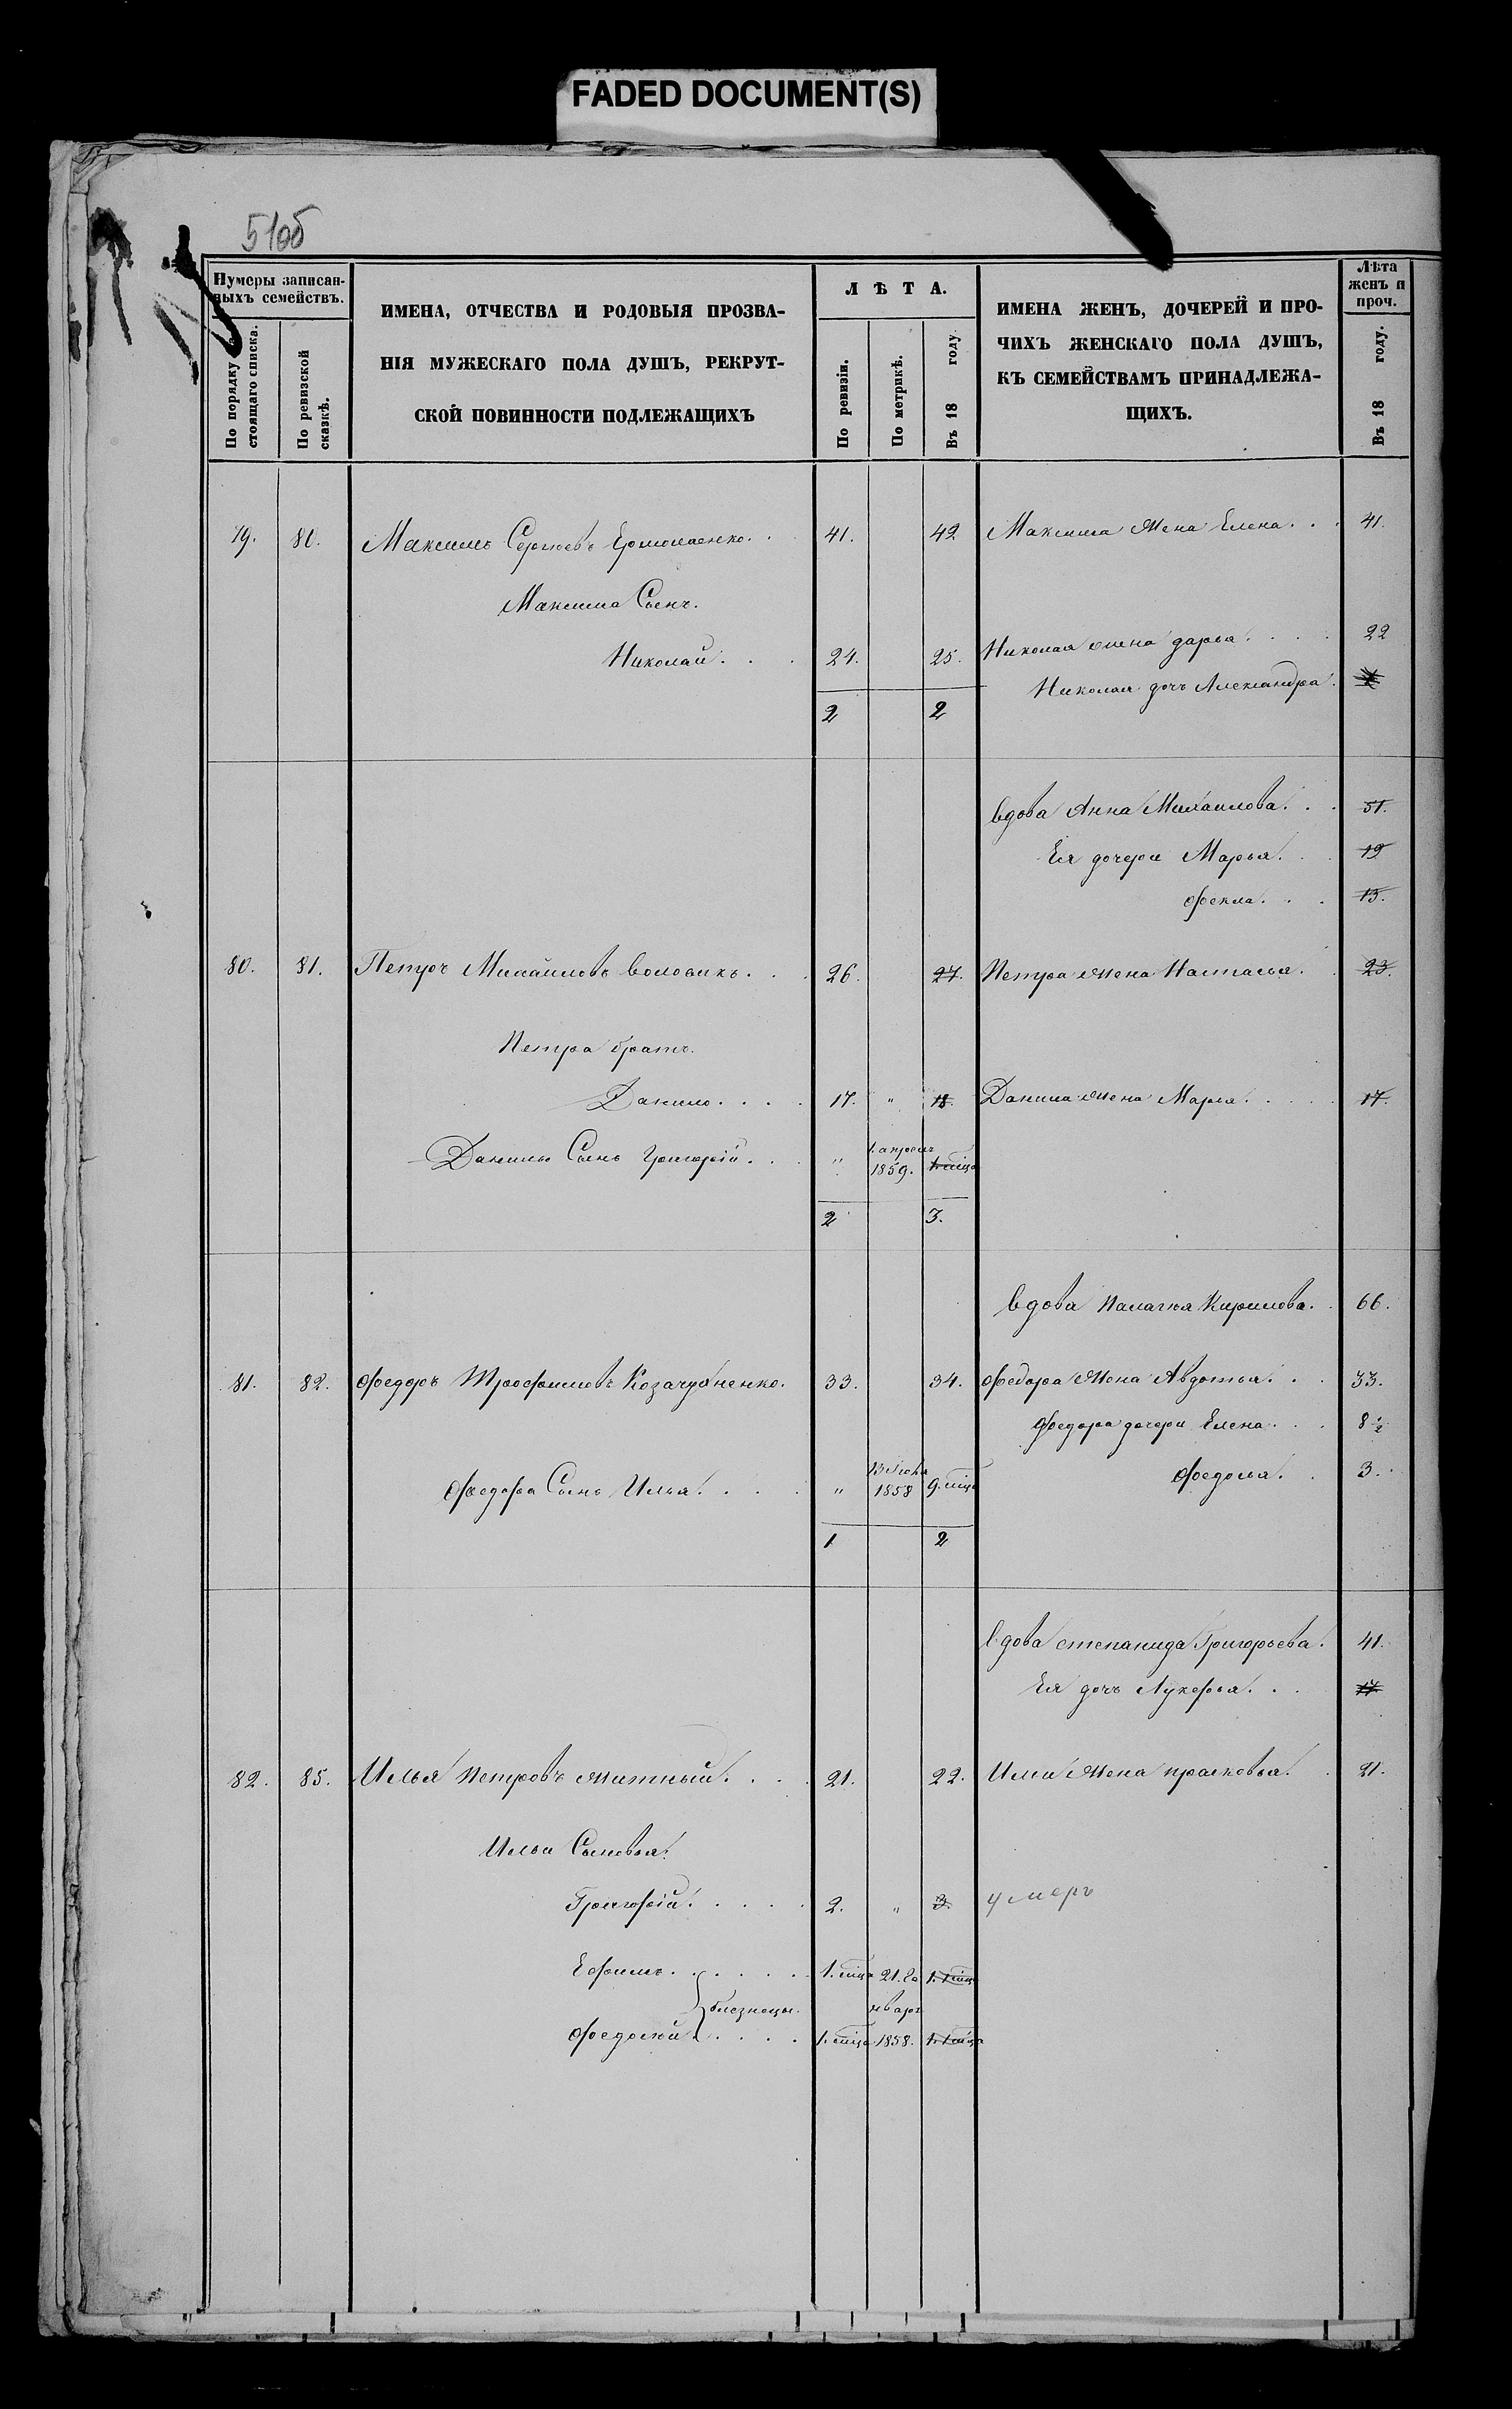 FADED DOCUMENT(S)
51об
Нумеры записан-
ныхъ семействъ.
По порядку
стоящаго списка.
По ревизской
сказкѣ.
ИМЕНА, ОТЧЕСТВА И РОДОВЫЯ ПРОЗВА-
НІЯ МУЖЕСКАГО ПОЛА ДУШЪ, РЕКРУТ-
СКОЙ ПОВИННОСТИ ПОДЛЕЖАЩИХЪ
Л Ѣ Т А.
По ревизіи.
По метрикѣ.
Въ 18 году.
ИМЕНА ЖЕНЪ, ДОЧЕРЕЙ И ПРО-
ЧИХЪ ЖЕНСКАГО ПОЛА ДУШЪ,
КЪ СЕМЕЙСТВАМЪ ПРИНАДЛЕЖА-
ЩИХЪ.
Лѣта
женъ и
проч.
Въ 18 году.
79. 80. Максимъ Сергѣевъ Ермолаенко. . 41. 42 Максима жена Елена. . . 41.
Максима Сынъ.
Николай. . . 24. 25. Николая жена дарья. . . . 22
Николая дочь Александра.
2 2
вдова Анна Михаилова. . . 51.
Ея дочери Марья. . . 19
Фекла. . . 13.
80. 81. Петръ Михайловъ Воловикъ. . . 26. 27. Петра жена Настасья. . 23.
Петра братъ.
Данило. . . . 17. " 18. Данила жена Марья. . . . . 17.
Данилы Сынъ Григорій. . . " 1. апрѣля 1859. 1. мѣца
2 3.
вдова Палагѣя Кирилова. . 66.
81. 82. Федоръ Трофимовъ Козачухненко. 33. 34. Федора жена Авдотья. . . 33.
Федора дочери Елена. . . 8 1/2
Федора Сынъ Илья. . . . " 1858 9. мѣца
Федосья. . 3.
1 2
вдова степанида Григорьева. 41.
Ея дочь Лукерья. . . 17.
82. 85. Илья Петровъ Житный. . . . 21. 22. Ильи жена прасковья. . 21.
Ильи Сыновья.
Григорій. . . . . 2. " 3. умеръ
Ефимъ. . . . . . . 1. мѣца 21. Ге 1. 1 мѣца
близнецы. нваря
Федосій. . . . . 1. мѣца 1858. 1. 1 мѣца